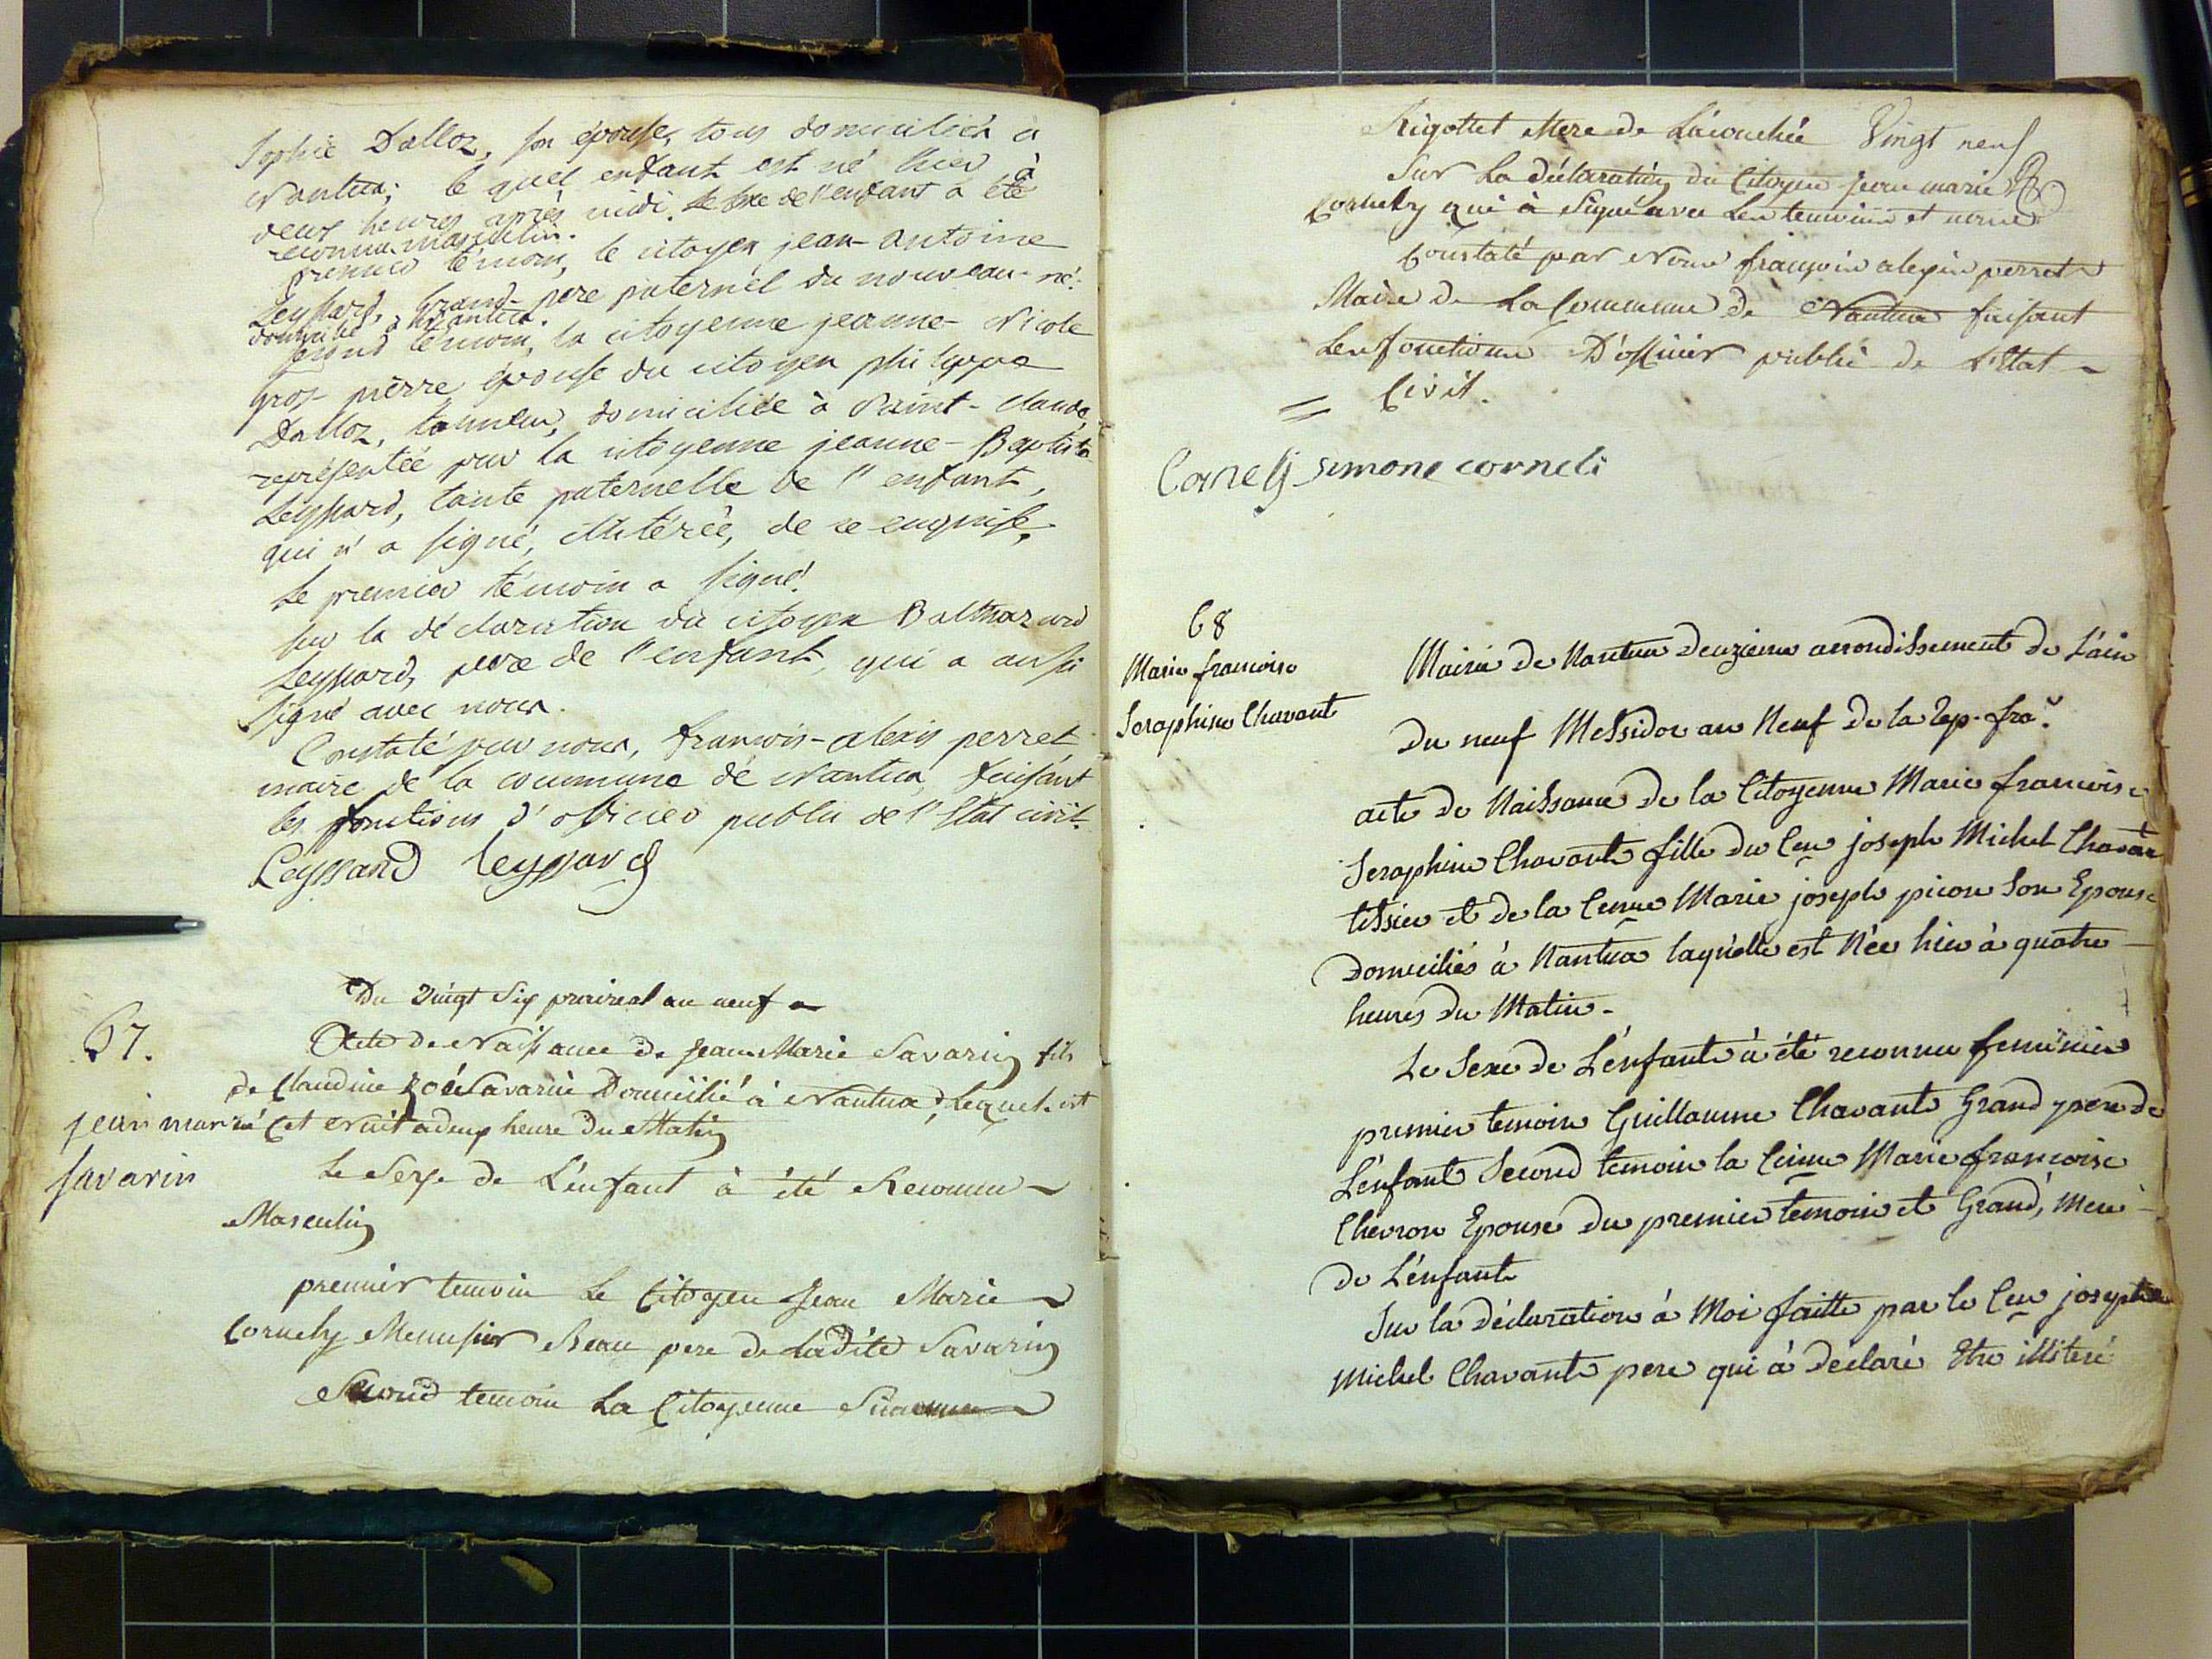 Sophie Dalloz, son épouse, tous domiciliés à
Nantua; le quel enfant est né hier à
deux heures après midi. le sexe de l'enfant a été
reconnu masculin.
premier témoin, le citoyen jean-antoine
Leyssard, grand-pere paternel du nouveau-né.
domicilié à Nantua.
second témoin, la citoyenne jeanne-Nicole
gros pierre épouse du citoyen philippe
Dalloz, tanneur, domiciliée à Saint-claude,
représentée par la citoyenne jeanne-Baptiste
Leyssard, tante paternelle de l'enfant,
qui n'a signé, illitérée, de ce enquise.
Le premier témoin a signé.
sur la déclaration du citoyen Balthazard
Leyssard, pere de l'enfant, qui a aussi
signé avec nous.
Constaté par nous, francois-alexis perret,
maire de la commune de Nantua, faisant
les fonctions d'officier public de l'Etat civil.
Leyssard leyssard
Du vingt Six prairéal an neuf
67.
jean marie
savarin
Acte de Naissance de Jean Marie Savarin fils
de Claudine Zoé Savarin Domicilié à Nantua, lequel est
né Cet Nuit a deux heure du Matin
Le Sexe de L'enfant à été Reconnu
Masculin
premier temoin Le Citoyen Jean Marie
Cornely Menusier Beau pere de Ladite Savarin
Second temoin La Citoyenne Simonne
Rigottet Mere de L'acouchée Vingt neuf
Sur La déclaration du Citoyen jean marie
Cornely qui à Signé avec Les temoins et nous
Constaté par Nous françois alexis perret
Maire de La Commune de Nantua faisant
Les fonctions D'officier public de L'Etat
Civil.
Cornelj simone corneli
68
Marie francoise
Seraphine Chavant
Mairie de Nantua deuzieme arrondissement de L'ain
Du neuf Messidor an Neuf de la Rep. fra.e
acte de Naissance de la Citoyenne Marie francoise
Seraphine Chavant fille du Cen joseph Michel Chavant
tissier et de la Cenne Marie joseph picon son Epouse
Domiciliés à Nantua laquelle est Née hier à quatre
heures du Matin.
Le Sexe de L'enfant à été reconnu feminin
premier temoin Guillaume Chavant Grand pere de
L'enfant Second temoin la Cenne Marie francoise
Chevron Epouse du premier temoin et Grand, Mere
de L'enfant
Sur la déclaration à Moi faitte par le Cen joseph
Michel Chavant pere qui à déclaré Etre illiteré